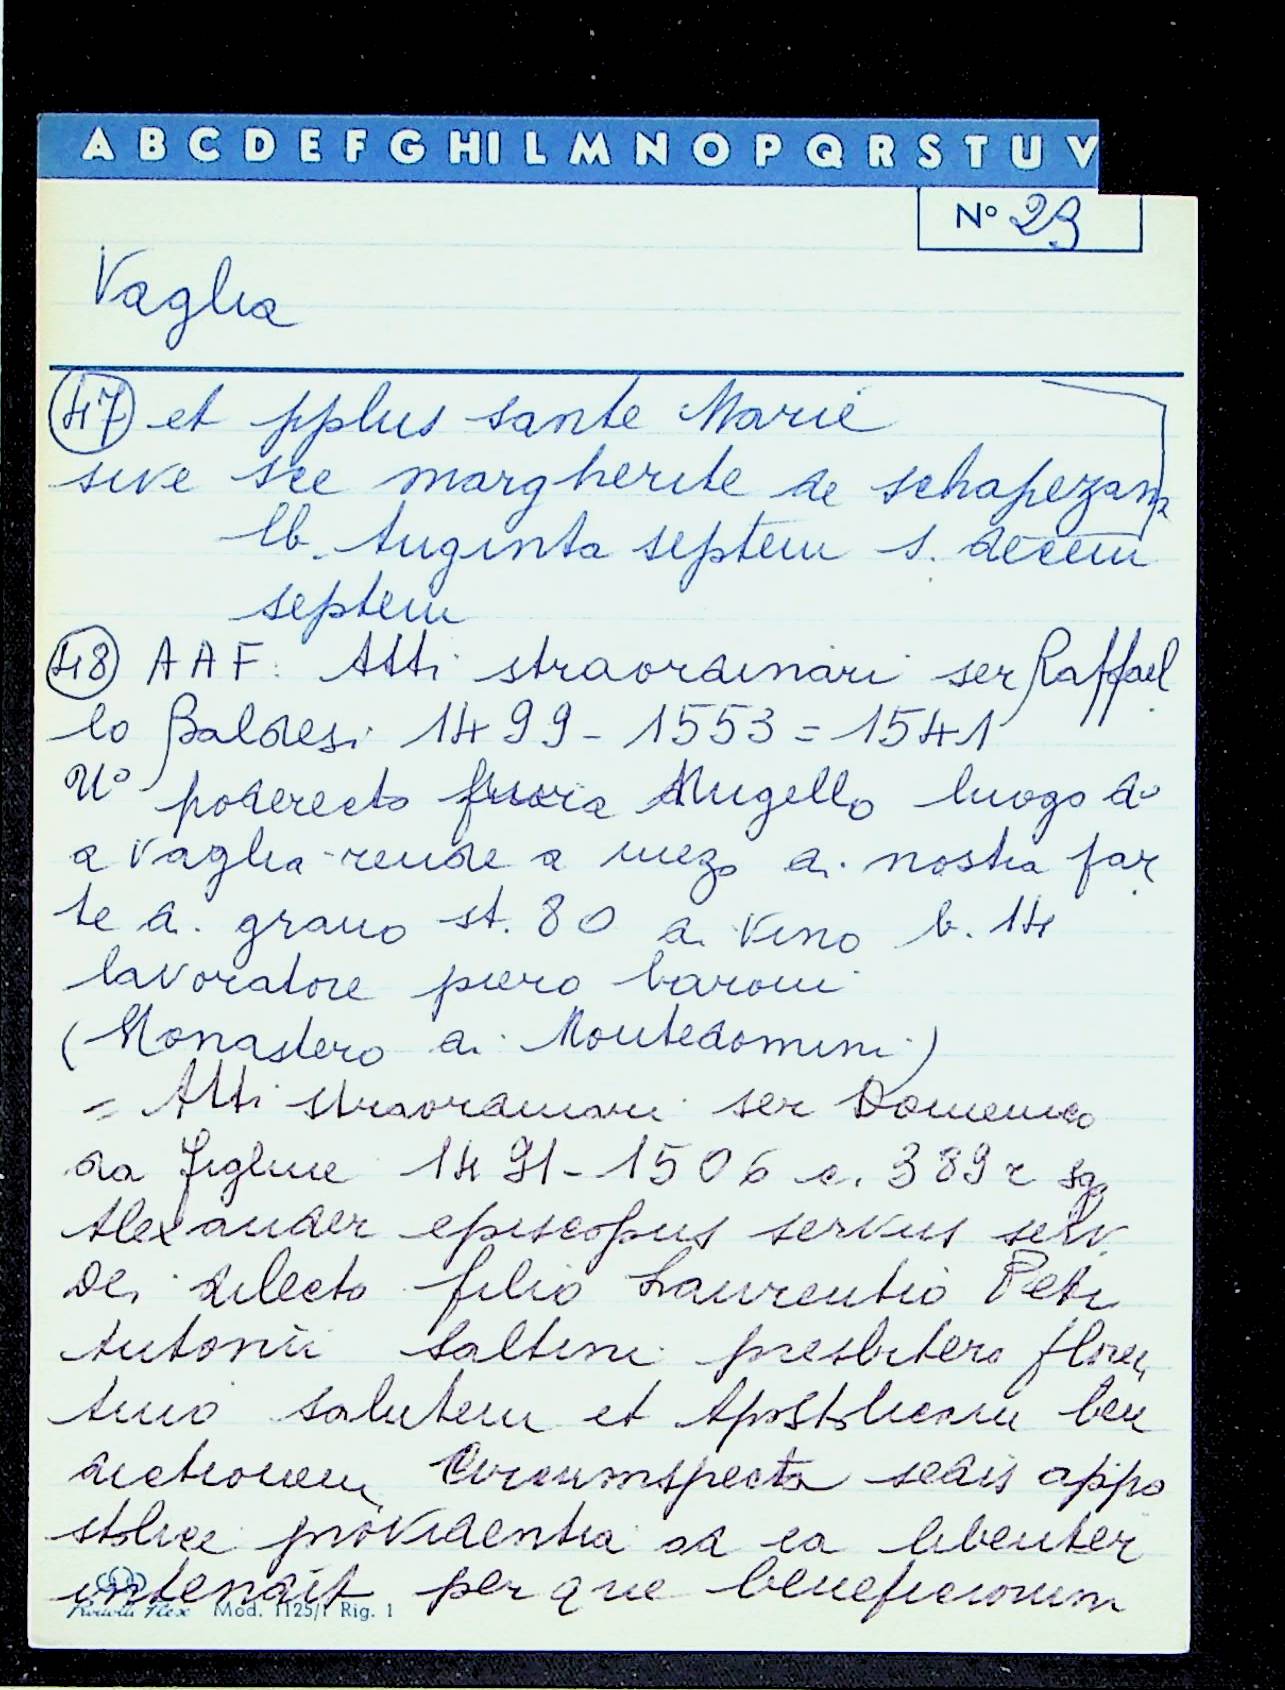 A B C D E F G H I L M N O P Q R S T U V
N° 23
Vaglia
47 et pplus sante Marie
sive sce margherite de schapezano
lb. triginta septem s. decem
septem
48 AAF: Atti straordinari ser Raffael
lo Baldesi 1499-1553 = 1541
Uº poderecto fuora Mugello luogo do
a Vaglia rende a mezo di nostra par
te di grano st. 80 di vino b. 14
lavoratore piero baroni
(Monastero di Montedomini)
= Atti straordinari ser Domenico
da Figline 1491-1506 c. 389r sg
Alexander episcopus servus serv.
Dei dilecto filio Laurentio Petri
Antonii Saltini presbitero floren
tino salutem et Apostolicam ben
dictionem Circumspecta sedis appo
stolice providentia ad ea libenter
intendit per que beneficiorum
Mod. 1125/1 Rig. 1